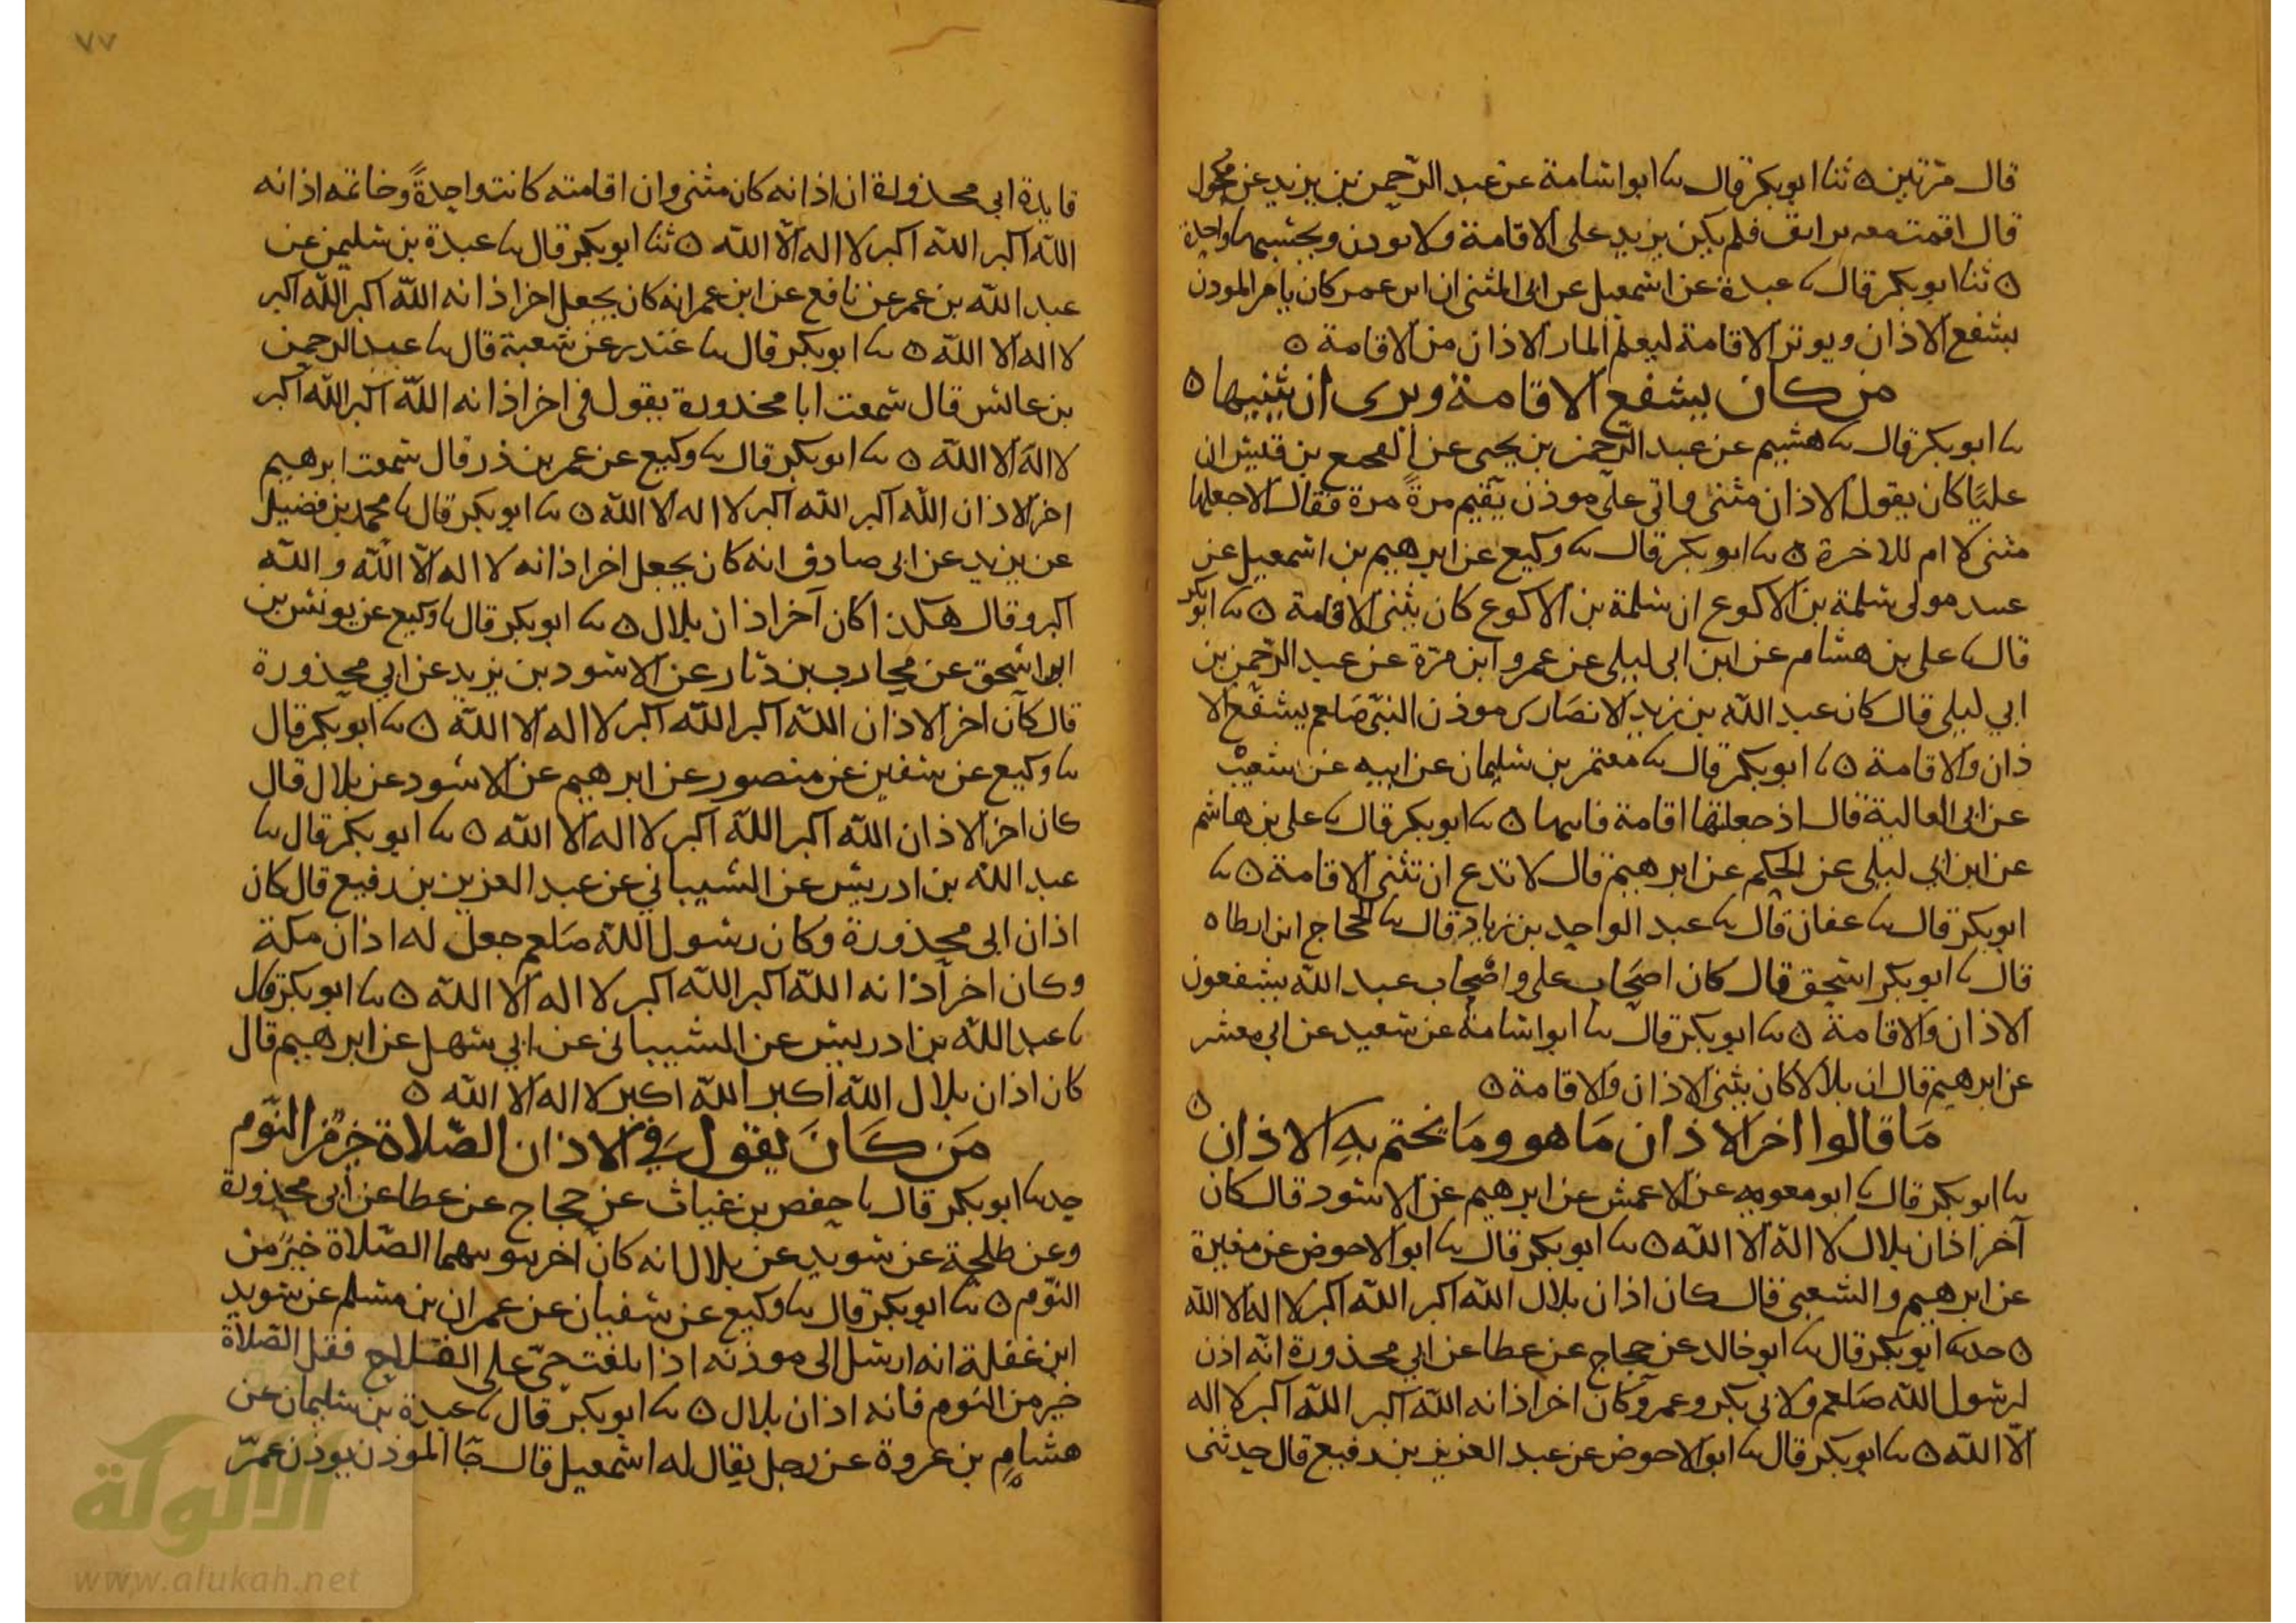 قال مرتين ٥ ثنا ابو بكر قال ثنا ابو اسامة عن عبد الرحمن بن يزيد عن مكحول
قال اقمت معه فلم يكن يزيد على الاقامة ولا يوذن ويحتسبها واحدة
٥ ثنا ابو بكر قال ثنا عبدة عن اسمعيل عن ابى المثنى ان ابن عمر كان يامر الموذن
يشفع الاذان ويوتر الاقامة ليعلم المار الاذان من الاقامة ٥
من كان يشفع الاقامة ويرى ان يثنيها ٥
ثنا ابو بكر قال ثنا هشيم عن عبد الرحمن بن يحيى عن الهجمع بن قيس ان
عليًا كان يقول الاذان مثنى واتى على موذن يقيم مرةً مرة فقال الا جعلتها
مثنى لا ام للاخرة ٥ ثنا ابو بكر قال ثنا وكيع عن ابرهيم بن اسمعيل عن
عبيد مولى سلمة بن الاكوع ان سلمة بن الاكوع كان يثنى الاقامة ٥ ثنا ابو بكر
قال ثنا على بن هشام عن ابن ابى ليلى عن عمرو ابن مرة عن عبد الرحمن بن
ابي ليلى قال كان عبد الله بن زيد الانصارى موذن النبى صلعم يشفع الا
ذان والاقامة ٥ ثنا ابو بكر قال ثنا معتمر بن سليمان عن ابيه عن شعيب
عن ابى العالية قال اذ جعلتها اقامة فاثنها ٥ ثنا ابو بكر قال ثنا على بن هاشم
عن ابن ابي ليلى عن الحكم عن ابرهيم قال لا تدع ان تثنى الاقامة ٥ ثنا
ابو بكر قال ثنا عفان قال ثنا عبد الواحد بن زياد قال ثنا الحجاج ابن ارطاه
قال ثنا ابو بكر اسحق قال كان اصحاب على واصحاب عبد الله يشفعون
الاذان والاقامة ٥ ثنا ابو بكر قال ثنا ابو اسامة عن سعيد عن ابى معشر
عن ابرهيم قال ان بلالا كان يثنى الاذان والاقامة ٥
ما قالوا اخر الاذان ما هو وما يختم به الاذان ٥
ثنا ابو بكر قال ثنا ابو معويه عن الاعمش عن ابرهيم عن الاسود قال كان
آخر اذان بلال لا اله الا الله ٥ ثنا ابو بكر قال ثنا ابو الاحوص عن مغيرة
عن ابرهيم والشعبى قال كان اذان بلال الله اكبر الله اكبر لا اله الا الله
٥ حدثنا ابو بكر قال ثنا ابو خالد عن حجاج عن عطا عن ابي محذورة انه اذن
لرسول الله صلعم ولابى بكر وعمر وكان اخر اذانه الله اكبر الله اكبر لا اله
الا الله ٥ ثنا ابو بكر قال ثنا ابو الاحوص عن عبد العزيز بن رفيع قال حدثنى
٧٧
قايدة ابى محذولة ان اذانه كان مثنى وان اقامته كانت واحدةً وخاتمه اذانه
الله اكبر الله اكبر لا اله الا الله ٥ ثنا ابو بكر قال ثنا عبدة بن سليمن عن
عبد الله بن عمر عن نافع عن ابن عمر انه كان يجعل اخر اذانه الله اكبر الله اكبر
لا اله الا الله ٥ ثنا ابو بكر قال ثنا غندر عن شعبة قال ثنا عبد الرحمن
بن عائش قال سمعت ابا محذورة يقول فى اخر اذانه الله اكبر الله اكبر
لا اله الا الله ٥ ثنا ابو بكر قال ثنا وكيع عن عمر بن ذر قال سمعت ابرهيم
اخر الاذان الله اكبر الله اكبر لا اله الا الله ٥ ثنا ابو بكر قال ثنا محمد بن فضيل
عن يزيد عن ابى صادق انه كان يجعل اخر اذانه لا اله الا الله والله
اكبر وقال هكذا كان آخر اذان بلال ٥ ثنا ابو بكر قال ثنا وكيع عن يونس بن
ابى اسحق عن محارب بن دثار عن الاسود بن يزيد عن ابي محذورة
قال كان اخر الاذان الله اكبر الله اكبر لا اله الا الله ٥ ثنا ابو بكر قال
ثنا وكيع عن سفين عن منصور عن ابرهيم عن الاسود عن بلال قال
كان اخر الاذان الله اكبر الله اكبر لا اله الا الله ٥ ثنا ابو بكر قال ثنا
عبد الله بن ادريس عن الشيباني عن عبد العزيز بن رفيع قال كان
اذان ابى محذورة وكان رسول الله صلعم جعل له اذان مكة
وكان اخر اذانه الله اكبر الله اكبر لا اله الا الله ٥ ثنا ابو بكر قال
ثنا عبد الله بن ادريس عن الشيبانى عن ابي سهل عن ابرهيم قال
كان اذان بلال الله اكبر الله اكبر لا اله الا الله ٥
من كان يقول في الاذان الصلاة خير من النوم
حدثنا ابو بكر قال ثنا حفص بن غياث عن حجاج عن عطا عن ابى محذولة
وعن طلحة عن سويد عن بلال انه كان اخر تثويبهما الصلاة خير من
النوم ٥ ثنا ابو بكر قال ثنا وكيع عن سفيان عن عمران بن مسلم عن سويد
ابن غفلة انه ارسل الى موذنه اذا بلغت حى على الفلاح فقل الصلاة
خير من النوم فانه اذان بلال ٥ ثنا ابو بكر قال ثنا عبدة بن سليمان عن
هشام بن عروة عن رجل يقال له اسمعيل قال جا الموذن يوذن عمر
الألوكة
www.alukah.net